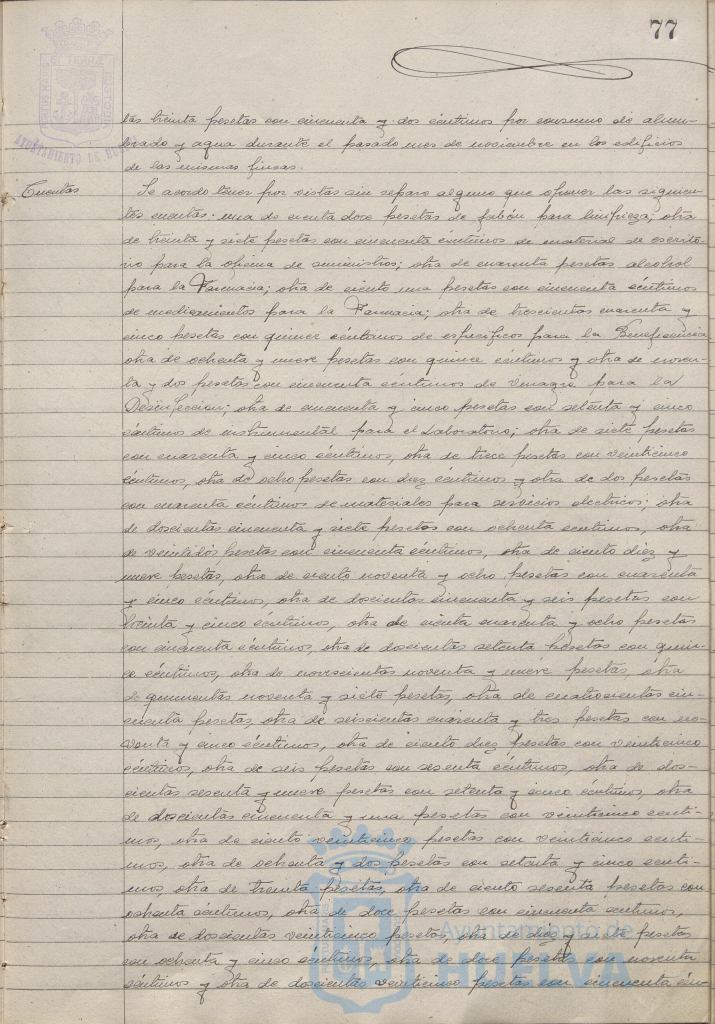 77
tas treinta pesetas con cincuenta y dos céntimos por consumo de alum-
brado y agua durante el pasado mes de noviembre en los edificios
de las mismas fincas.
Cuentas
Se acordó tener por vistas sin reparo alguno que oponer las siguien-
tes cuentas: una de cienta doce pesetas de jabón para limpieza; otra
de treinta y siete pesetas con cincuenta céntimos de material de escrito-
rio para la oficina de suministros; otra de cuarenta pesetas alcohol
para la Farmacia; otra de ciento una pesetas con cincuenta céntimos
de medicamentos para la Farmacia; otra de trescientas cuarenta y
cinco pesetas con quince céntimos de específicos para la Beneficencia
otra de ochenta y nueve pesetas con quince céntimos y otra de noven-
ta y dos pesetas con cincuenta céntimos de vinagre para la
Desinfeccion; otra de cincuenta y cinco pesetas con setenta y cinco
céntimos de instrumental para el Laboratorio; otra de siete pesetas
con cuarenta y cinco céntimos, otra de trece pesetas con veinticinco
céntimos, otra de ocho pesetas con diez céntimos y otra de dos pesetas
con cuarenta céntimos de materiales para servicios electricos; otra
de doscientas cincuenta y siete pesetas con ochenta céntimos, otra
de veintidós pesetas con cincuenta céntimos, otra de ciento diez y
nueve pesetas, otra de ciento noventa y ocho pesetas con cuarenta
y cinco céntimos, otra de doscientas cincuenta y seis pesetas con
treinta y cinco céntimos, otra de cienta cuarenta y ocho pesetas
con cincuenta céntimos, otra de doscientas setenta pesetas con quin-
ce céntimos, otra de novecientas noventa y nueve pesetas, otra
de quinientas noventa y siete pesetas, otra de cuatrocientas cin-
cuenta pesetas, otra de seiscientas cuarenta y tres pesetas con no-
venta y cinco céntimos, otra de ciento diez pesetas con veinticinco
céntimos, otra de seis pesetas con sesenta céntimos, otra de dos-
cientas sesenta y nueve pesetas con setenta y cinco céntimos, otra
de doscientas cincuenta y una pesetas con veinticinco centi-
mos, otra de ciento veinticinco pesetas con veinticinco centi-
mos, otra de ochenta y dos pesetas con setenta y cinco centi-
mos, otra de treinta pesetas, otra de ciento sesenta pesetas con
ochenta céntimos, otra de doce pesetas con cincuenta centimos,
otra de doscientas veinticinco pesetas, otra de diez y siete pesetas
con ochenta y cinco céntimos, otra de doce pesetas con noventa
céntimos y otra de doscientas veinticinco pesetas con cincuenta cén-
Ayuntamiento de
HUELVA